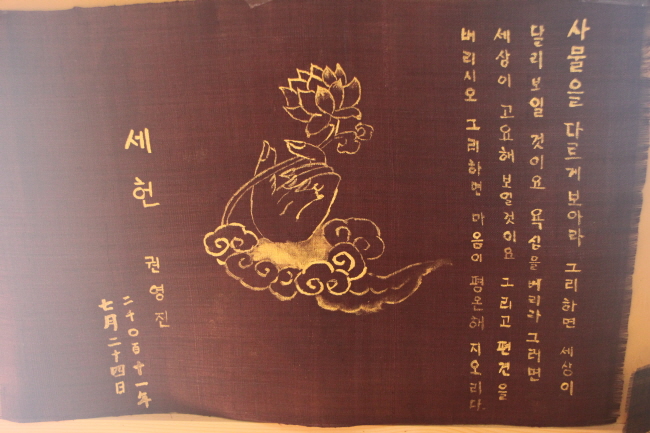 사물을 다르게 보아라 그리하면 세상이
달리 보일 것이요 욕심을 버리라 그러면
세상이 고요해 보일것이요 그리고 편견을
버리시오 그리하면 마음이 평온해 지오리다
세헌
권영진
二千０百十一年
七月二十四日